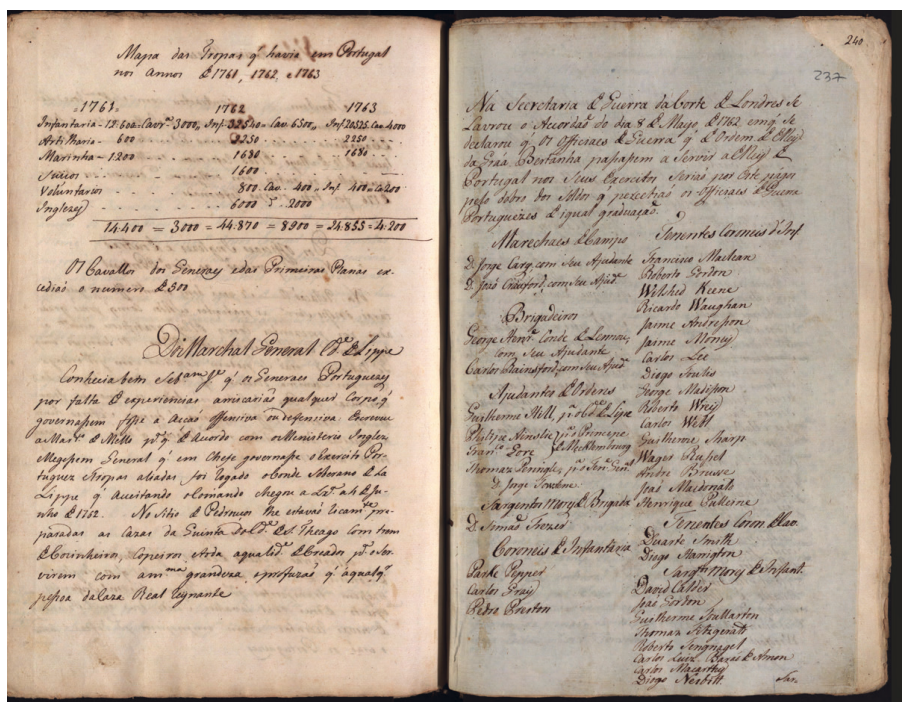 Mapa das Tropas q' havia em Portugal
nos Annos de 1761, 1762, e 1763
1761. 1762 1763
Infantaria - 12.600 - Cavr.ª 3000,, Inf. 32540 - Cav. 6500,, Inf. 20525 Cav. 4000
Artilharia - 600 3250 2250
Marinha - 1200 1680 1680
Suicos 1600
Voluntarios 800 Cav. 400,, Inf. 400 = Ca 200
Inglezes 6000 2000
14.400 = 3000 = 44.870 = 8900 = 24.855 = 4.200
Os Cavallos dos Generaes e das Primeiras Planas ex-
cediaõ o numero de 500
Do Marchal General C.de de Lippe
Conhecia bem Seb.am Je. q' os Generaes Portuguezes
por falta de experiencias arriscariaõ qualquer Corpo q'
governassem fosse a Acaõ offensiva ou deffensiva. Escreveu
a Mart.º de Mello p.ª q' de Acordo com o Ministerio Inglez
General q' em Chefe governasse o Exercito Por-
tuguez e tropas aliadas, foi logado o Conde Soberano de La
Lippe q' Aceitando o Comando chegou a Lx.ª a 4 de Ju-
nho de 1762. No Sitio de Pedroucos lhe estavaõ ricam.te pre-
paradas as Cazas da Quinta do de S. Theago com trem
de Cozinheiros, Copeiros, e toda aqualid.e de Creados p.ª o Ser-
virem com a m.ma grandeza, e profuzaõ q' a qualq.r
pessoa da Caza Real reynante
240
237
Na Secretaria de Guerra da Corte de Londres se
Lavrou o Accordaõ do dia 8 de Março de 1762 em q' se
declarou q' os Officiaes de Guerra q' de Ordem de ElRey
da Graã Bertanha passassem a Servir a ElRey de
Portugal nos Seus Exercitos Seriaõ por este pagos
pelo dobro dos Soldos q' percebiaõ os Officiaes de Guerra
Portuguezes de igual graduaçaõ.
Marechaes de Campo
D. Jorge Cary, com Seu Ajudante
D. Joaõ Crauford, com Seu Ajud.e
Brigadeiros
George Henr.e Conde de Lennox,
com Seu Ajudante
Carlos Rainsford, com Seu Ajud.e
Ajudantes de Ordens
Guilherme Hill, p.ª o C.de de Lipe
Philipe Ainslie p.ª o Principe
Fran.co Gore de Mecklembourg
Thomaz p.ª o Ten. Gen.al
D. Jorge
Sargento Mor de Brigada
D. Simaõ Frazer
Coroneis de Infantaria
Parke Pepper
Carlos Gray
Pedro Preston
Tenentes Coroneis d'Inf.
Francisco Maclean
Roberto Gordon
Welshed Keene
Ricardo Waughan
Jaime Anderson
Jaime Money
Carlos Lee
Diogo
George Madison
Roberto
Carlos Webb
Guilherme Sharp
Wager Russel
Andre
Joaõ Macdonals
Henrique Pulleine
Tenentes Coron. de Cav.
Duarte Smith
Diogo Harrigton
Sarg.tos Mores de Infant.
David Calder
Joaõ Gordon
Guilherme
Thomaz Fitzgerald
Roberto
Carlos Luiz Baraõ de
Carlos Macarthey
Diogo Nesbitt.
Sar.